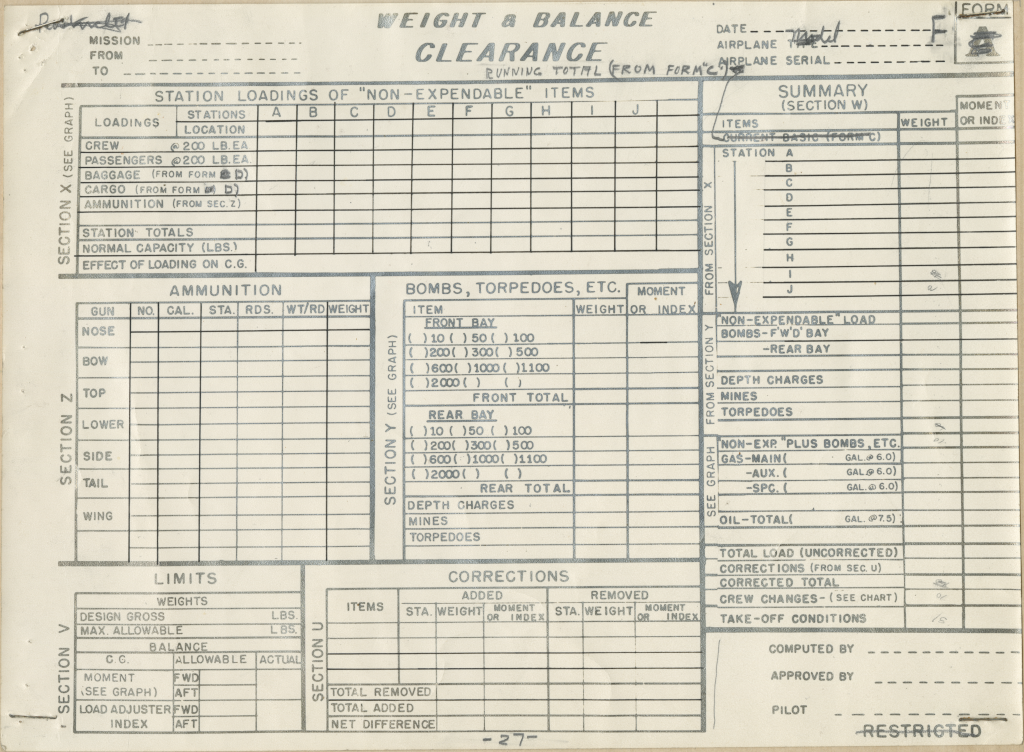 WEIGHT & BALANCE
CLEARANCE
RUNNING TOTAL (FROM FORM "C")
MISSION
FROM
TO
DATE
AIRPLANE Model
AIRPLANE SERIAL
FORM
F
STATION LOADINGS OF "NON-EXPENDABLE" ITEMS
SECTION X (SEE GRAPH)
LOADINGS STATIONS A B C D E F G H I J
LOCATION
CREW @ 200 LB.EA
PASSENGERS @ 200 LB.EA.
BAGGAGE (FROM FORM D)
CARGO (FROM FORM D)
AMMUNITION (FROM SEC. Z)
STATION TOTALS
NORMAL CAPACITY (LBS.)
EFFECT OF LOADING ON C.G.
SECTION Z
AMMUNITION
GUN NO. CAL. STA. RDS. WT/RD WEIGHT
NOSE
BOW
TOP
LOWER
SIDE
TAIL
WING
SECTION Y (SEE GRAPH)
BOMBS, TORPEDOES, ETC.
ITEM WEIGHT MOMENT OR INDEX
FRONT BAY
( )10 ( )50 ( )100
( )200( )300( )500
( )600( )1000( )1100
( )2000( ) ( )
FRONT TOTAL
REAR BAY
( )10 ( )50 ( )100
( )200( )300( )500
( )600( )1000( )1100
( )2000( ) ( )
REAR TOTAL
DEPTH CHARGES
MINES
TORPEDOES
SECTION V
LIMITS
WEIGHTS
DESIGN GROSS LBS.
MAX. ALLOWABLE LBS.
BALANCE
C.G. ALLOWABLE ACTUAL
MOMENT FWD
(SEE GRAPH) AFT
LOAD ADJUSTER FWD
INDEX AFT
SECTION U
CORRECTIONS
ITEMS ADDED REMOVED
STA. WEIGHT MOMENT OR INDEX STA. WEIGHT MOMENT OR INDEX
TOTAL REMOVED
TOTAL ADDED
NET DIFFERENCE
SUMMARY
(SECTION W)
ITEMS WEIGHT MOMENT OR INDEX
CURRENT BASIC (FORM C)
FROM SECTION X
STATION A
B
C
D
E
F
G
H
I
J
FROM SECTION Y
"NON-EXPENDABLE" LOAD
BOMBS-F'W'D' BAY
-REAR BAY
DEPTH CHARGES
MINES
TORPEDOES
SEE GRAPH
"NON-EXP." PLUS BOMBS, ETC.
GAS-MAIN( GAL.@ 6.0)
-AUX. ( GAL.@ 6.0)
-SPC. ( GAL.@ 6.0)
OIL-TOTAL( GAL. @7.5)
TOTAL LOAD (UNCORRECTED)
CORRECTIONS (FROM SEC. U)
CORRECTED TOTAL
CREW CHANGES- (SEE CHART)
TAKE-OFF CONDITIONS
COMPUTED BY
APPROVED BY
PILOT
RESTRICTED
-27-